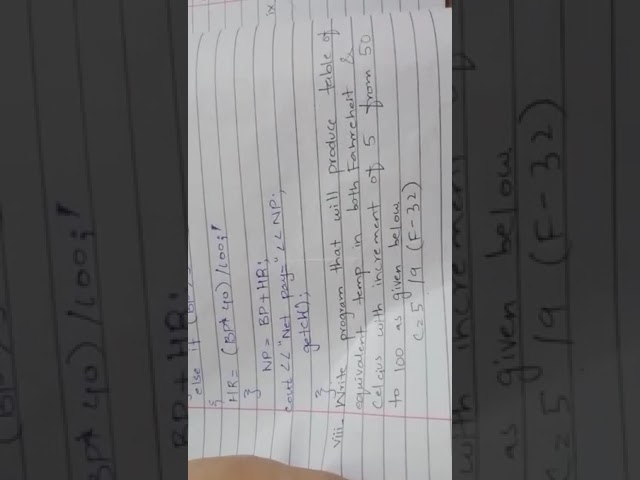 else if (BP
{
HR= (BP* 40) /100;
}
NP= BP+HR;
cout <<"Net pay="<<NP;
getch();
}
viii. Write program that will produce table of
equivalent temp in both Fahrehest &
Celcius with increment of 5 from 50
to 100 as given below
C=5 /9 (F-32)
ix